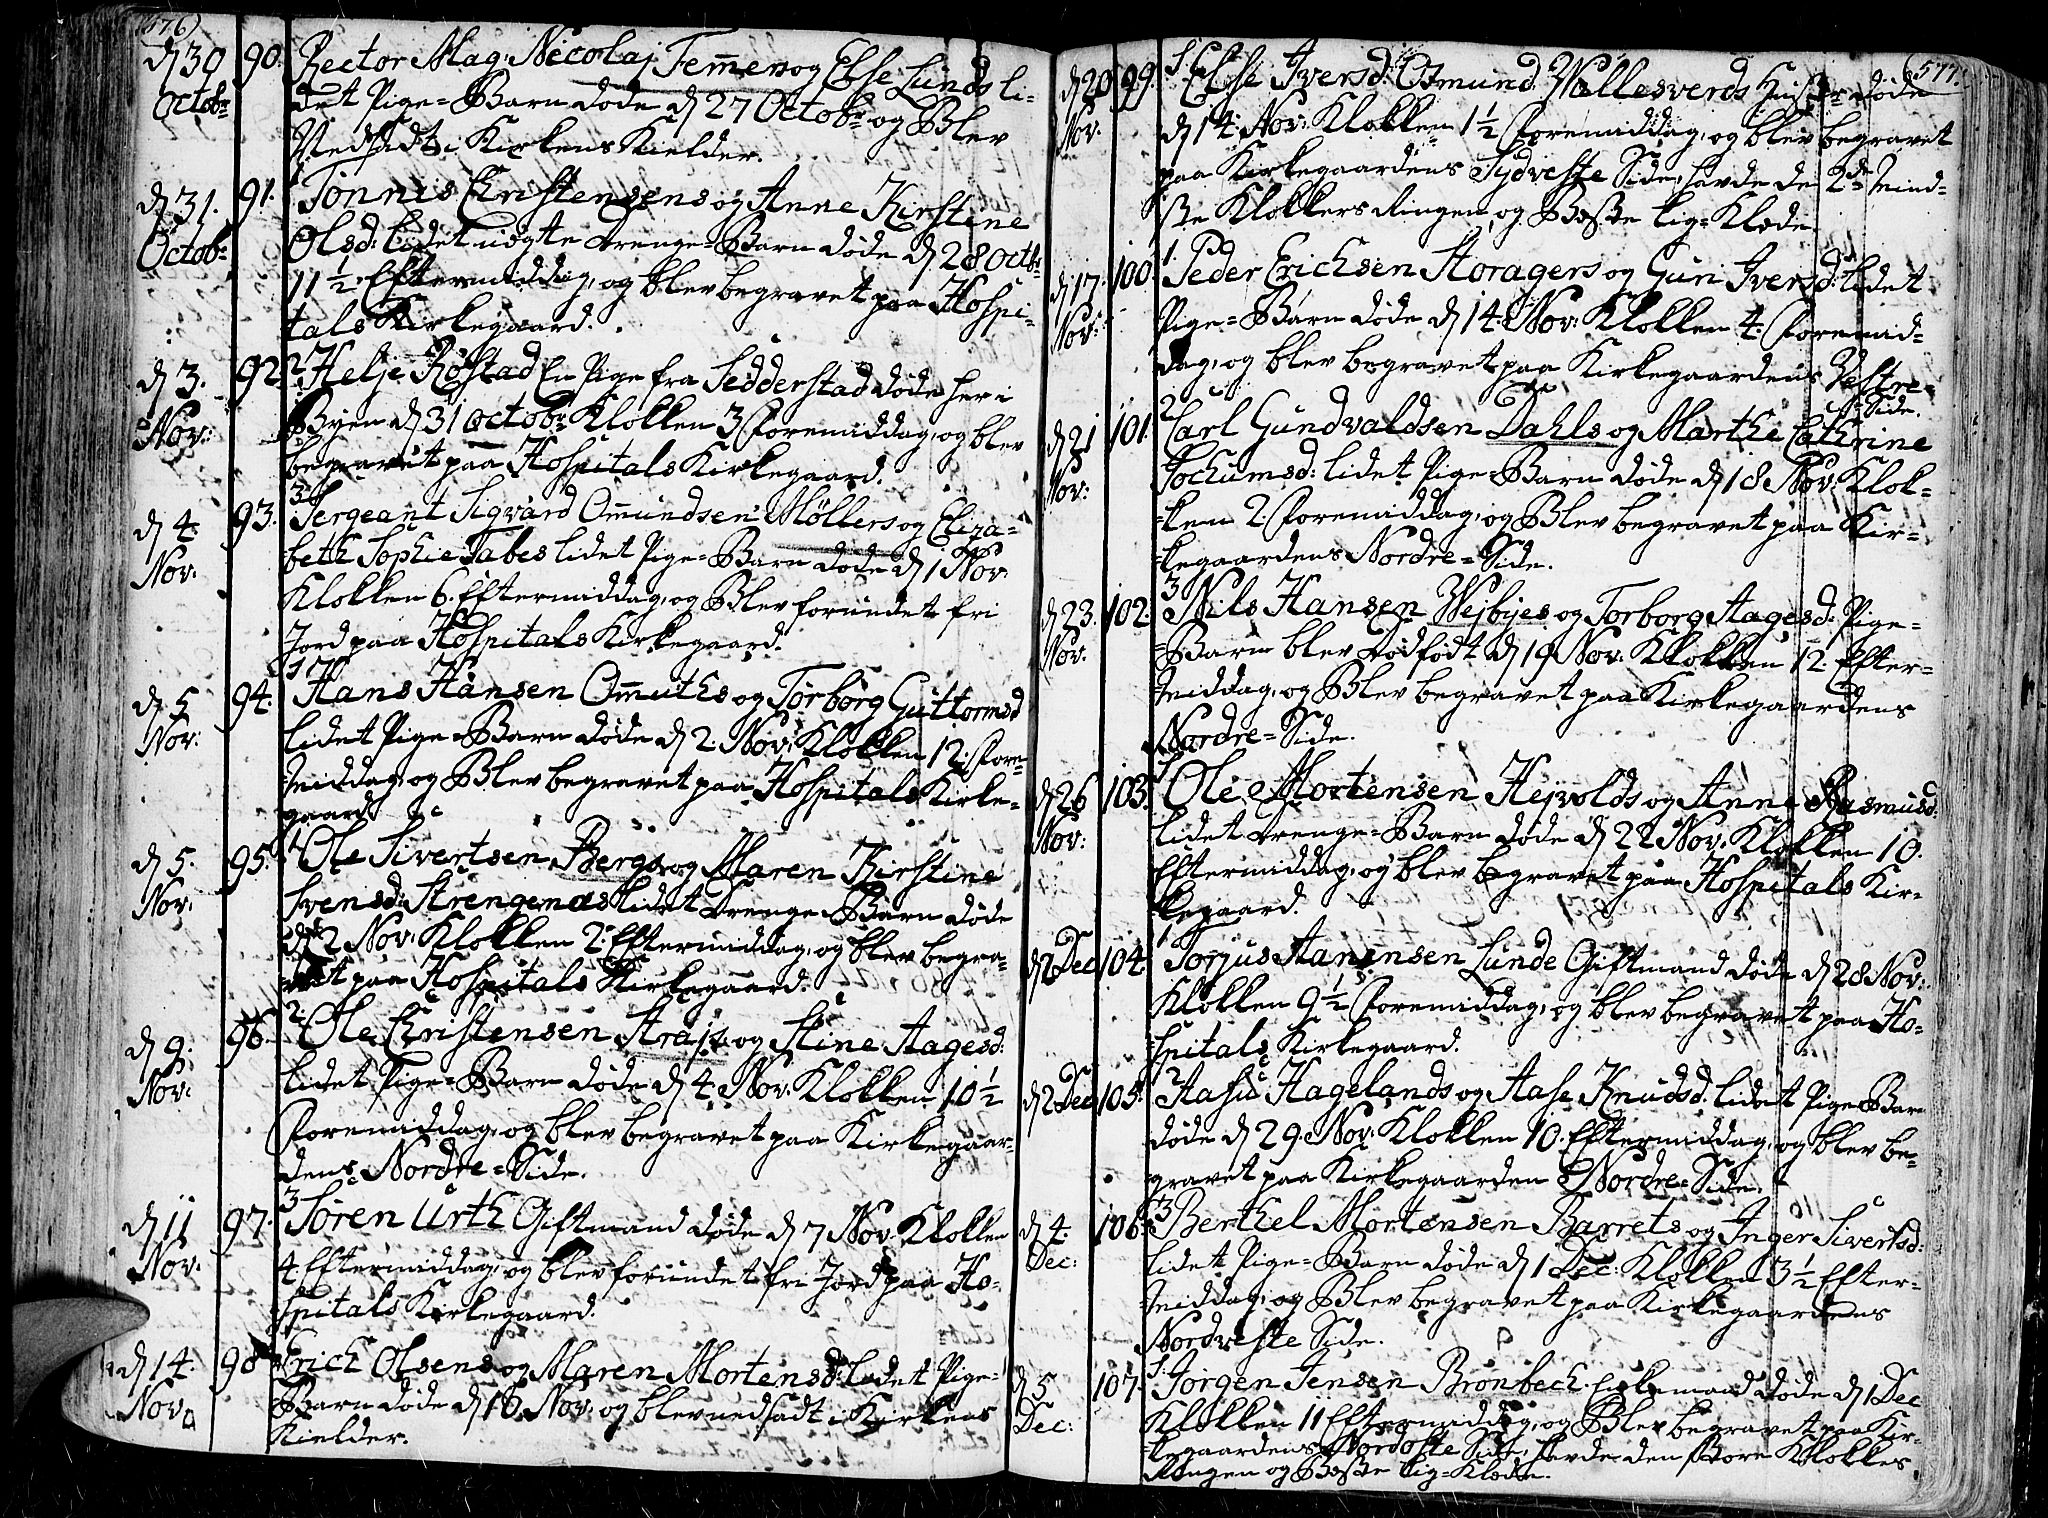 576)
d 30 Octobr 90. Rector Mag. Necolaj Femmers og Else Lunds li-
det Pige-Barn døde d 27 Octobr og Blev
Nedsadt i Kirkens Kielder.
d 31. Octobr 91. 1 Tönnis Christensens og Anne Kirstine
Olsd: lidet uægte Drenge-Barn døde d 28 Octbr
11 1/2 Eftermiddag, og blev begravet paa Hospi-
tals Kirkegaard.
d 3. Nov: 92 2 Helje Røstad En Pige fra Sedderstad døde her i
Byen d 31 Octobr Klokken 3 Foremiddag, og blev
begravet paa Hospitals Kirkegaard.
d 4. Nov. 93. 3 Sergeant Sigvard Omundsen Møllers og Eliza-
beth Sophie Tabes lidet Pige-Barn døde d 1 Nov:
Klokken 6. Eftermiddag, og Blev forundet fri
Jord paa Hospitals Kirkegaard.
d 5 Nov: 94. 1 Hans Hansen Omuths og Torborg Guttormsd
lidet Pige-Barn døde d 2. Nov: Klokken 12. Fore-
middag, og Blev begravet paa Hospitals Kirke-
gaard
d 5. Nov. 95. 1 Ole Sivertsen Bergs og Maren Kirstine
Svensd: Strengenæs lidet Drenge-Barn døde
d 2 Nov: Klokken 2. Eftermiddag, og blev begra-
vet paa Hospitals Kirkegaard.
d 9. Nov. 96. 2. Ole Christensen Strajs og Stine Aagesd:
lidet Pige-Barn døde d 4 Nov. Klokken 10 1/2
Foremiddag, og blev begravet paa Kirkegaar-
dens Nordre-Side.
d 11 Nov. 97. 3 Søren Urth Giftmand døde d 7 Nov. Klokken
4. Eftermiddag, og blev forundet fri Jord paa Ho-
spitals Kirkegaard.
d 14. Nov. 98 Erich Olsens og Maren Mortensd: lidet Pige-
Barn døde d 10 Nov. og blev nedsadt i Kirkens
Kielder.
577.
d 20 Nov. 99. 1 Else Iversd: Osmund Wallesverds døde
d 14. Nov: Klokken 1 1/2 Foremiddag, og blev begravet
paa Kirkegaardens Sydveste Side, havde de 2de Mind-
ste Klokkers Ringen, og Beste Lig-Klæde.
d 17. Nov: 100 1 Peder Erichsen Storagers og Guri Iversd: lidet
Pige-Barn døde d 14. Nov: Klokken 4. Foremid-
dag, og blev begravet paa Kirkegaardens Vestre-
Side.
d 21 Nov: 101. 2 Carl Gundvaldsen Dahls og Marthe Cathrine
Jochumsd: lidet Pige-Barn døde d 18 Nov: Klok-
ken 2. Foremiddag, og Blev begravet paa Kir-
kegaardens Nordre-Side.
d 23. Nov. 102. 3 Nils Hansen Wejbyes og Torborg Aagesd: Pige-
Barn blev Dødfødt d 19 Nov. Klokken 12. Efter-
middag, og Blev begravet paa Kirkegaardens
Nordre-Side.
d 26 Nov: 103. 1 Ole Mortensen Hejvolds og Anne Rasmusd:
lidet Drenge-Barn døde d 22 Nov. Klokken 10.
Eftermiddag, og blev begravet paa Hospitals Kir-
kegaard.
d 2 Dec 104. 1 Torjus Aanensen Lunde Giftmand døde d 28 Nov:
Klokken 9 1/2 Foremiddag, og blev begravet paa Ho-
spitals Kirkegaard.
d 2 Dec 105. 2 Hagelands og Aase Knudsd. lidet Pige-Barn
døde d 29. Nov. Klokken 10. Eftermiddag, og blev be-
gravet paa Kirkegaarden Nordre-Side.
d 4. Dec: 106. 3 Berthel Mortensen Barrets og Inger Sivertsd:
lidet Pige-Barn døde d 1 Dec: Klokken 3 1/2 Efter-
middag, og Blev begravet paa Kirkegaardens
Nordveste Side.
d 5 Dec: 107. 1. Jørgen Jensen Brønbech. Enkemand døde d 1 Dec
Klokken 11 Eftermiddag, og Blev begravet paa Kir-
kegaardens Nordoste Side, havde den store Klokkes
Ringen og Beste Lig-Klæde.